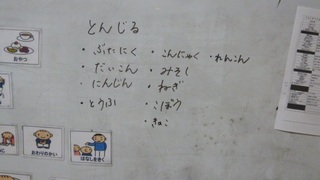 とんじる
・ぶたにく ・こんにゃく ・れんこん
・だいこん ・みそし
・にんじん ・ねぎ
・とうふ ・ごぼう
・きのこ
おやつ
おわりのかい
はなしをきく